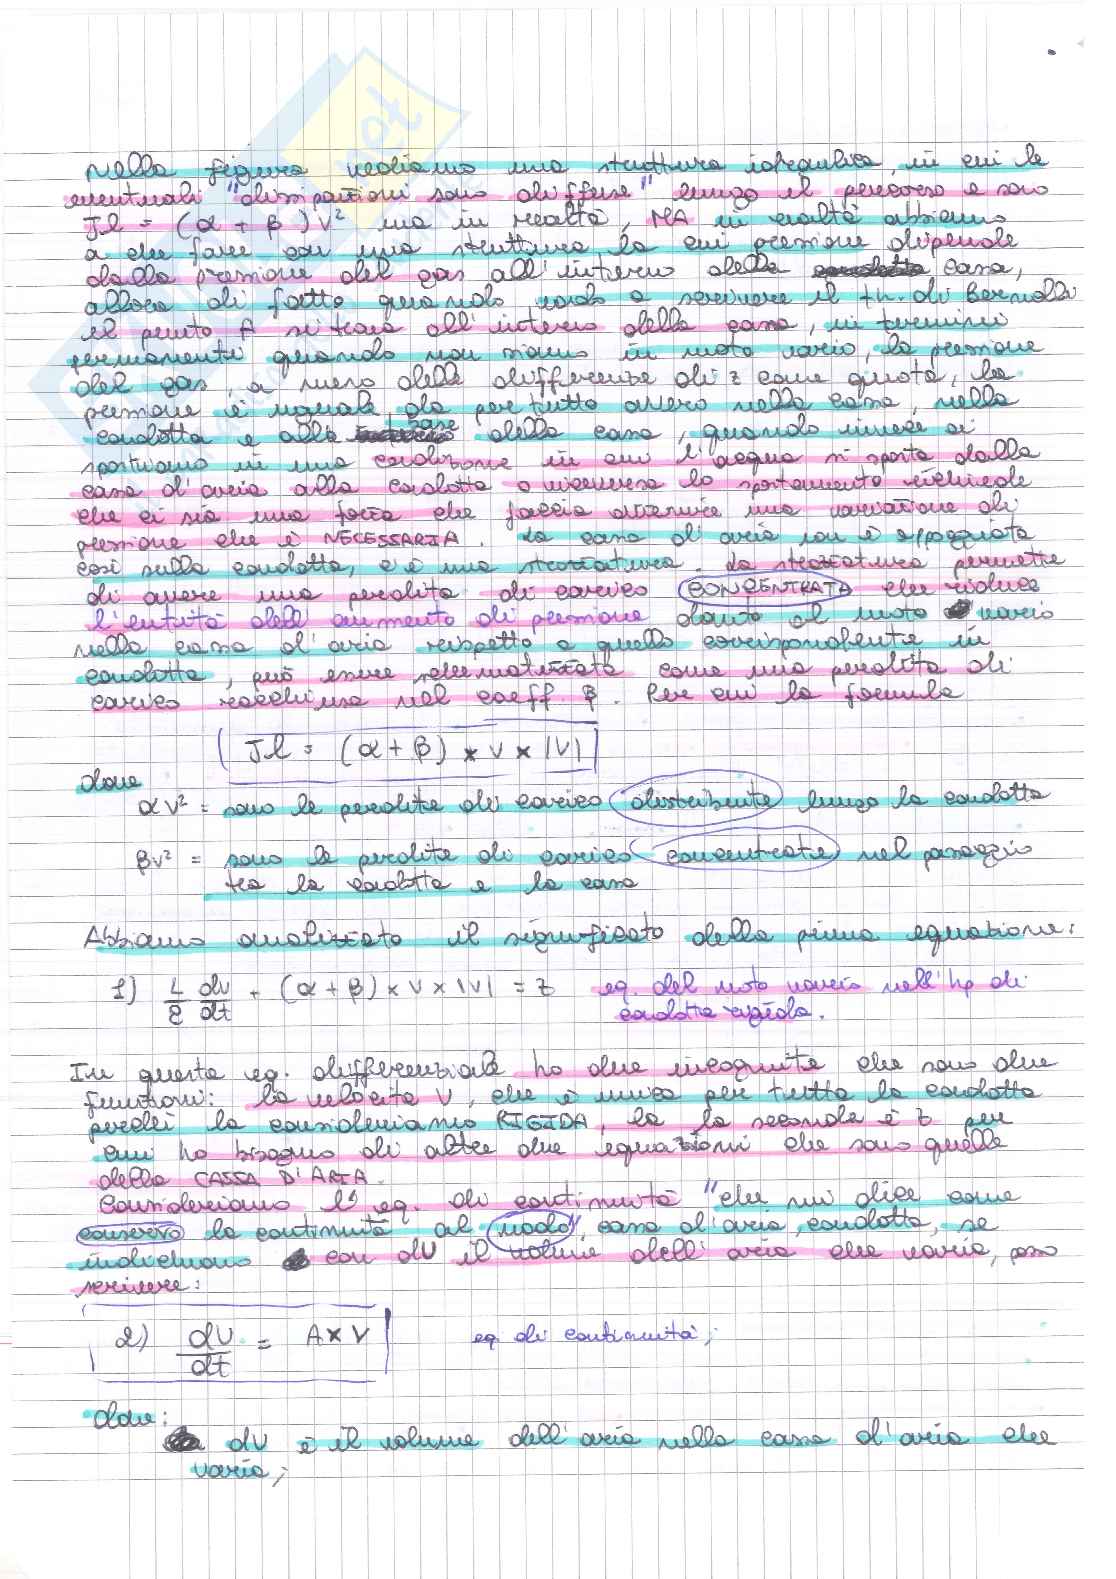 Nella figura vediamo una struttura idraulica, in cui le
eventuali "dissipazioni sono diffuse" lungo il percorso e sono
Jl = (α + β)V² ma in realtà, MA in realtà abbiamo
a che fare con una struttura la cui pressione dipende
dalla pressione del gas all'interno della cassa,
allora di fatto quando vado a scrivere il th. di Bernolli
il punto A si trova all'interno della cassa, in termini
permanenti quando non siamo in moto vario, la pressione
del gas, a meno delle differenze di z come quota, la
pressione è uguale da per tutto ovvero nella cassa, nella
condotta e alla base della cassa, quando invece ci
spostiamo in una condizione in cui l'acqua si sposta dalla
cassa d'aria alla condotta o viceversa lo spostamento richiede
che ci sia una forza che faccia avvenire una variazione di
pressione che è NECESSARIA. La cassa d'aria non è appoggiata
così sulla condotta, c'è una strozzatura. La strozzatura permette
di avere una perdita di carico CONCENTRATA che riduce
l'entità dell'aumento di pressione dovuto al moto vario
nella cassa d'aria rispetto a quello corrispondente in
condotta, può essere schematizzata come una perdita di
carico racchiusa nel coeff β. Per cui la formula
Jl = (α + β) * V * |V|
dove
αV² = sono le perdite di carico distribuite lungo la condotta
βV² = sono le perdite di carico concentrate nel passaggio
tra la condotta e la cassa
Abbiamo analizzato il significato della prima equazione:
1) L/g dV/dt + (α + β) * V * |V| = z eq. del moto vario nell'hp di
condotta rigida.
In questa eq. differenziale ho due incognite che sono due
funzioni: la velocità V, che è unica per tutta la condotta
perchè la consideriamo RIGIDA, la la seconda è z per
cui ho bisogno di altre due equazioni che sono quelle
della CASSA D'ARIA.
Consideriamo l'eq. di continuità "che mi dice come
conservo la continuità al nodo", cassa d'aria, condotta, se
individuano con dU il volume dell'aria che varia, posso
scrivere:
2) dU/dt = A * V eq di continuità;
dove:
dU è il volume dell'aria nella cassa d'aria che
varia;